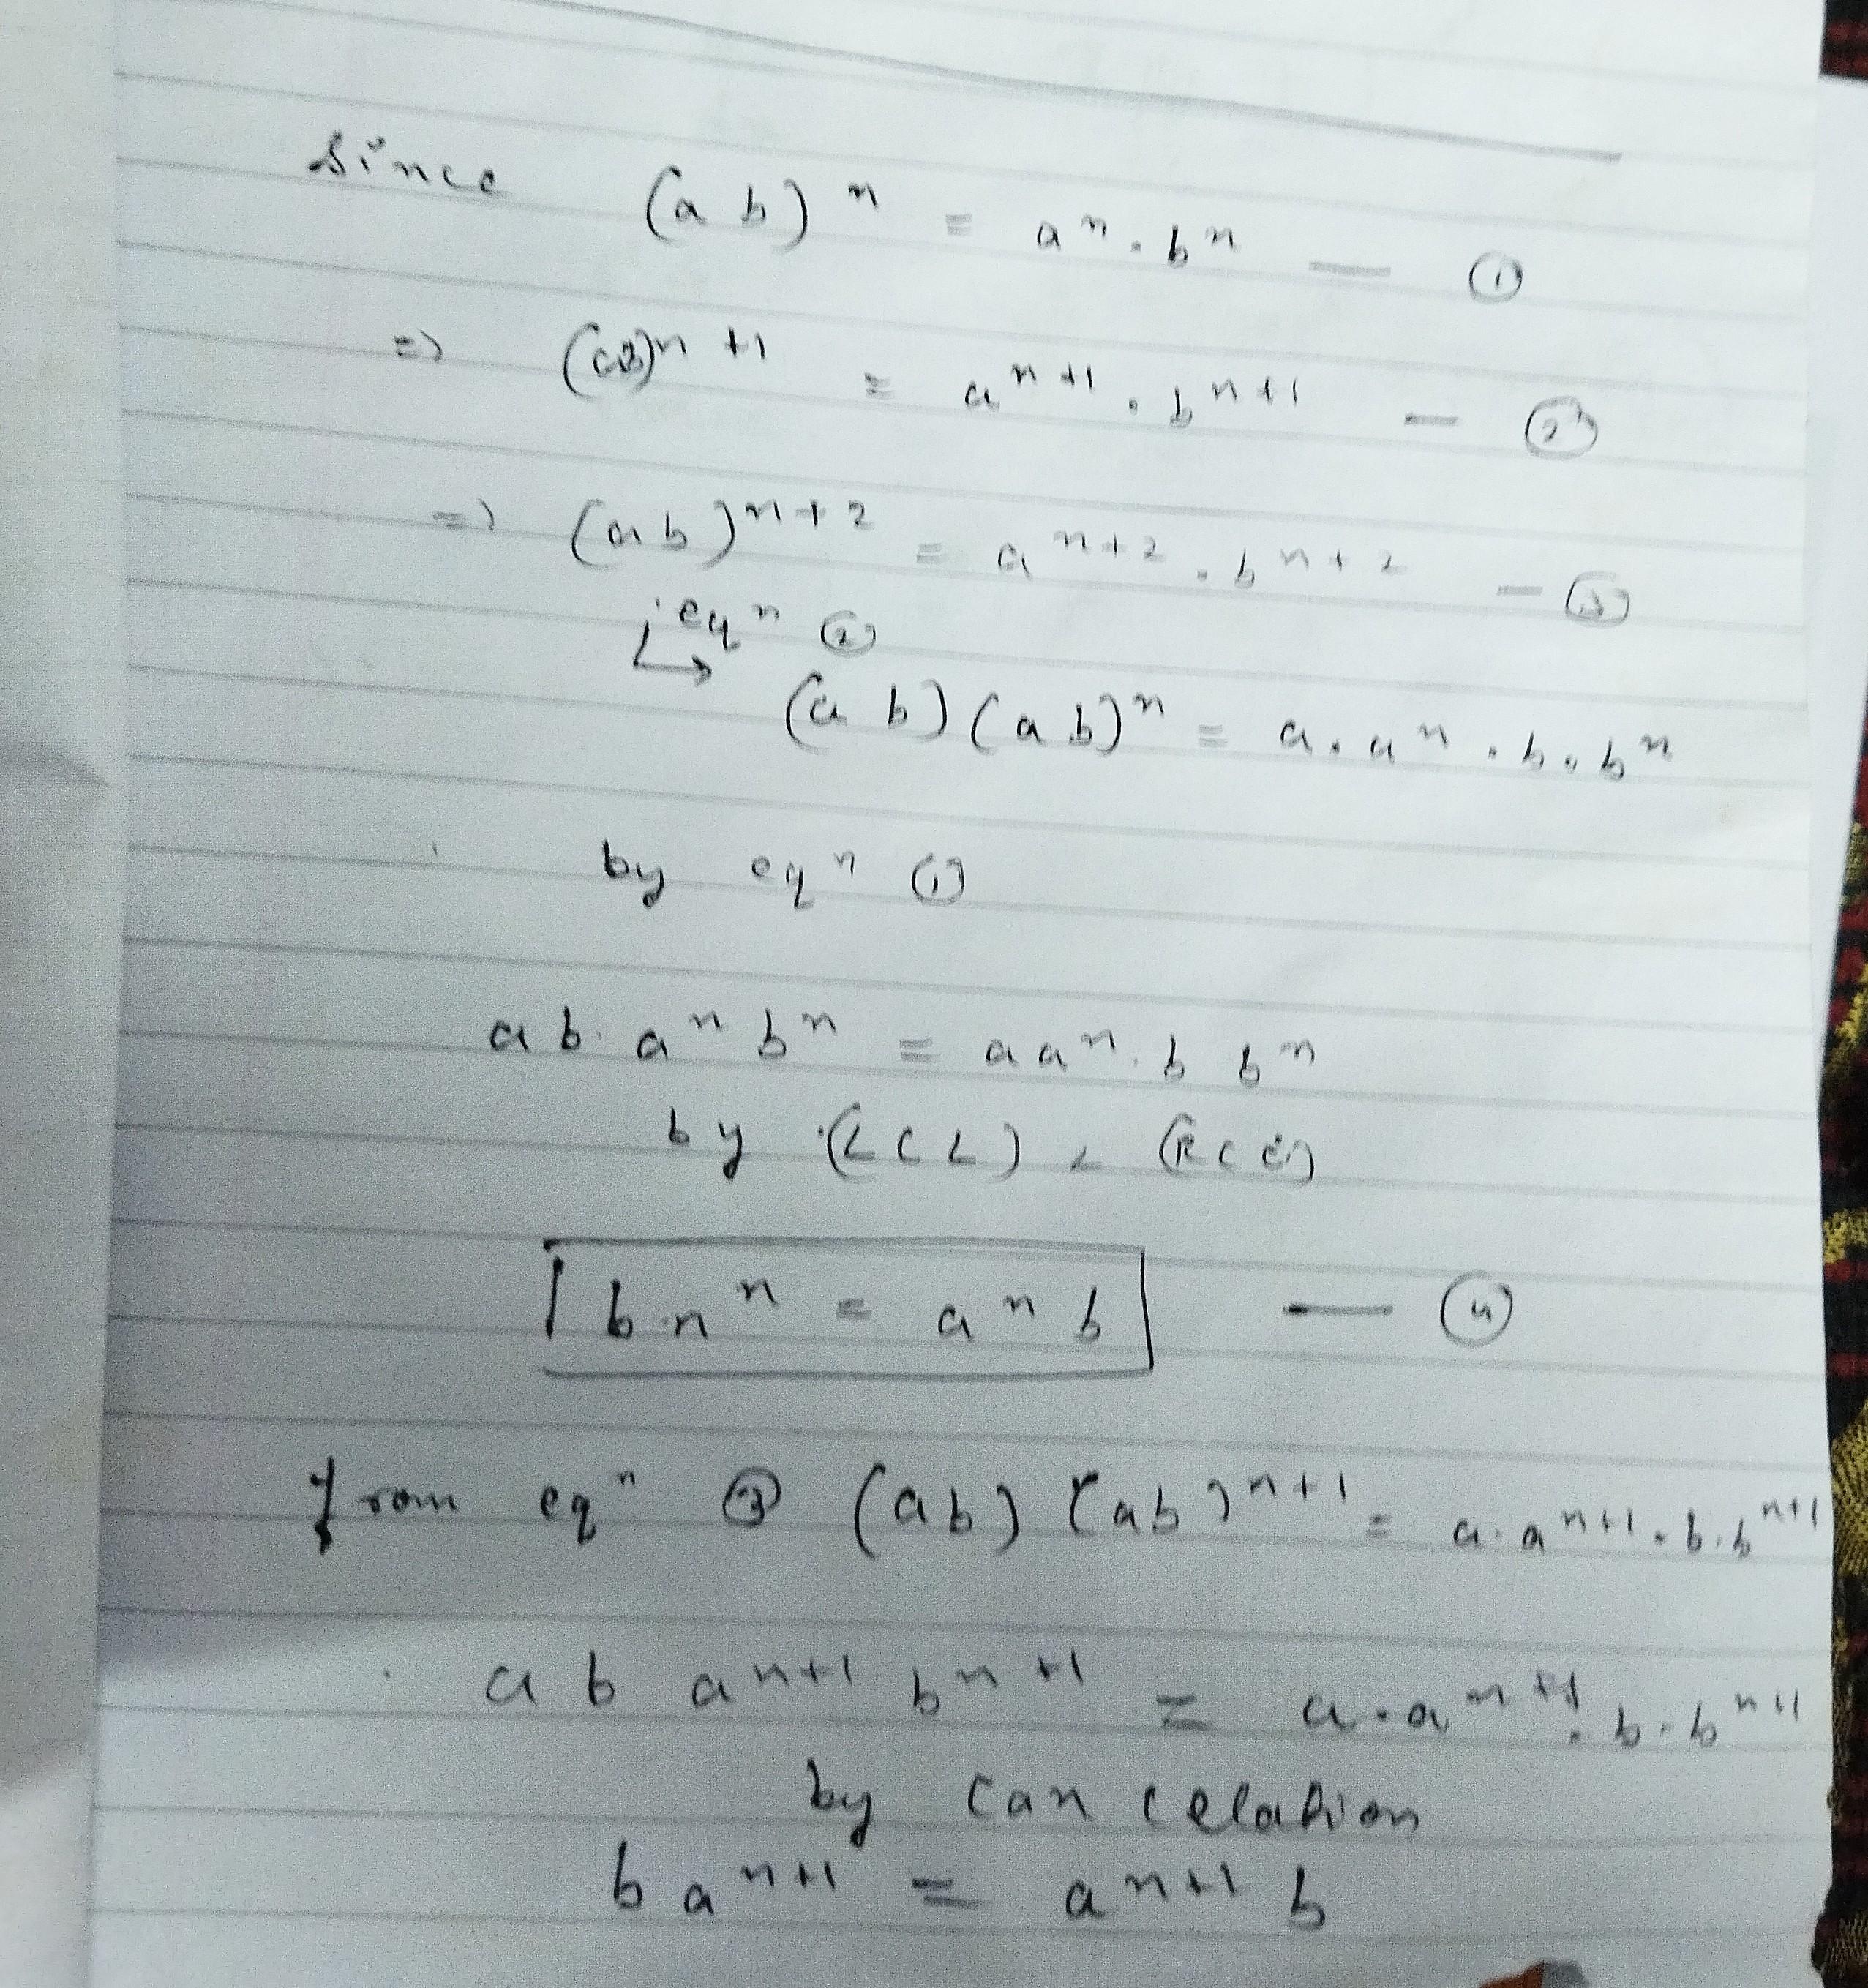 since (ab)ⁿ = aⁿ.bⁿ — ①
=> (ab)ⁿ⁺¹ = aⁿ⁺¹.bⁿ⁺¹ — ②
=> (ab)ⁿ⁺² = aⁿ⁺².bⁿ⁺² — ③
eqⁿ ②
↳ (ab)(ab)ⁿ = a.aⁿ.b.bⁿ
by eqⁿ ①
ab.aⁿbⁿ = aaⁿ.bbⁿ
by (LCL)
b.nⁿ = aⁿb — ④
from eqⁿ ③ (ab)(ab)ⁿ⁺¹ = a.aⁿ⁺¹.b.bⁿ⁺¹
abaⁿ⁺¹bⁿ⁺¹ = a.aⁿ⁺¹.b.bⁿ⁺¹
by cancelation
baⁿ⁺¹ = aⁿ⁺¹b